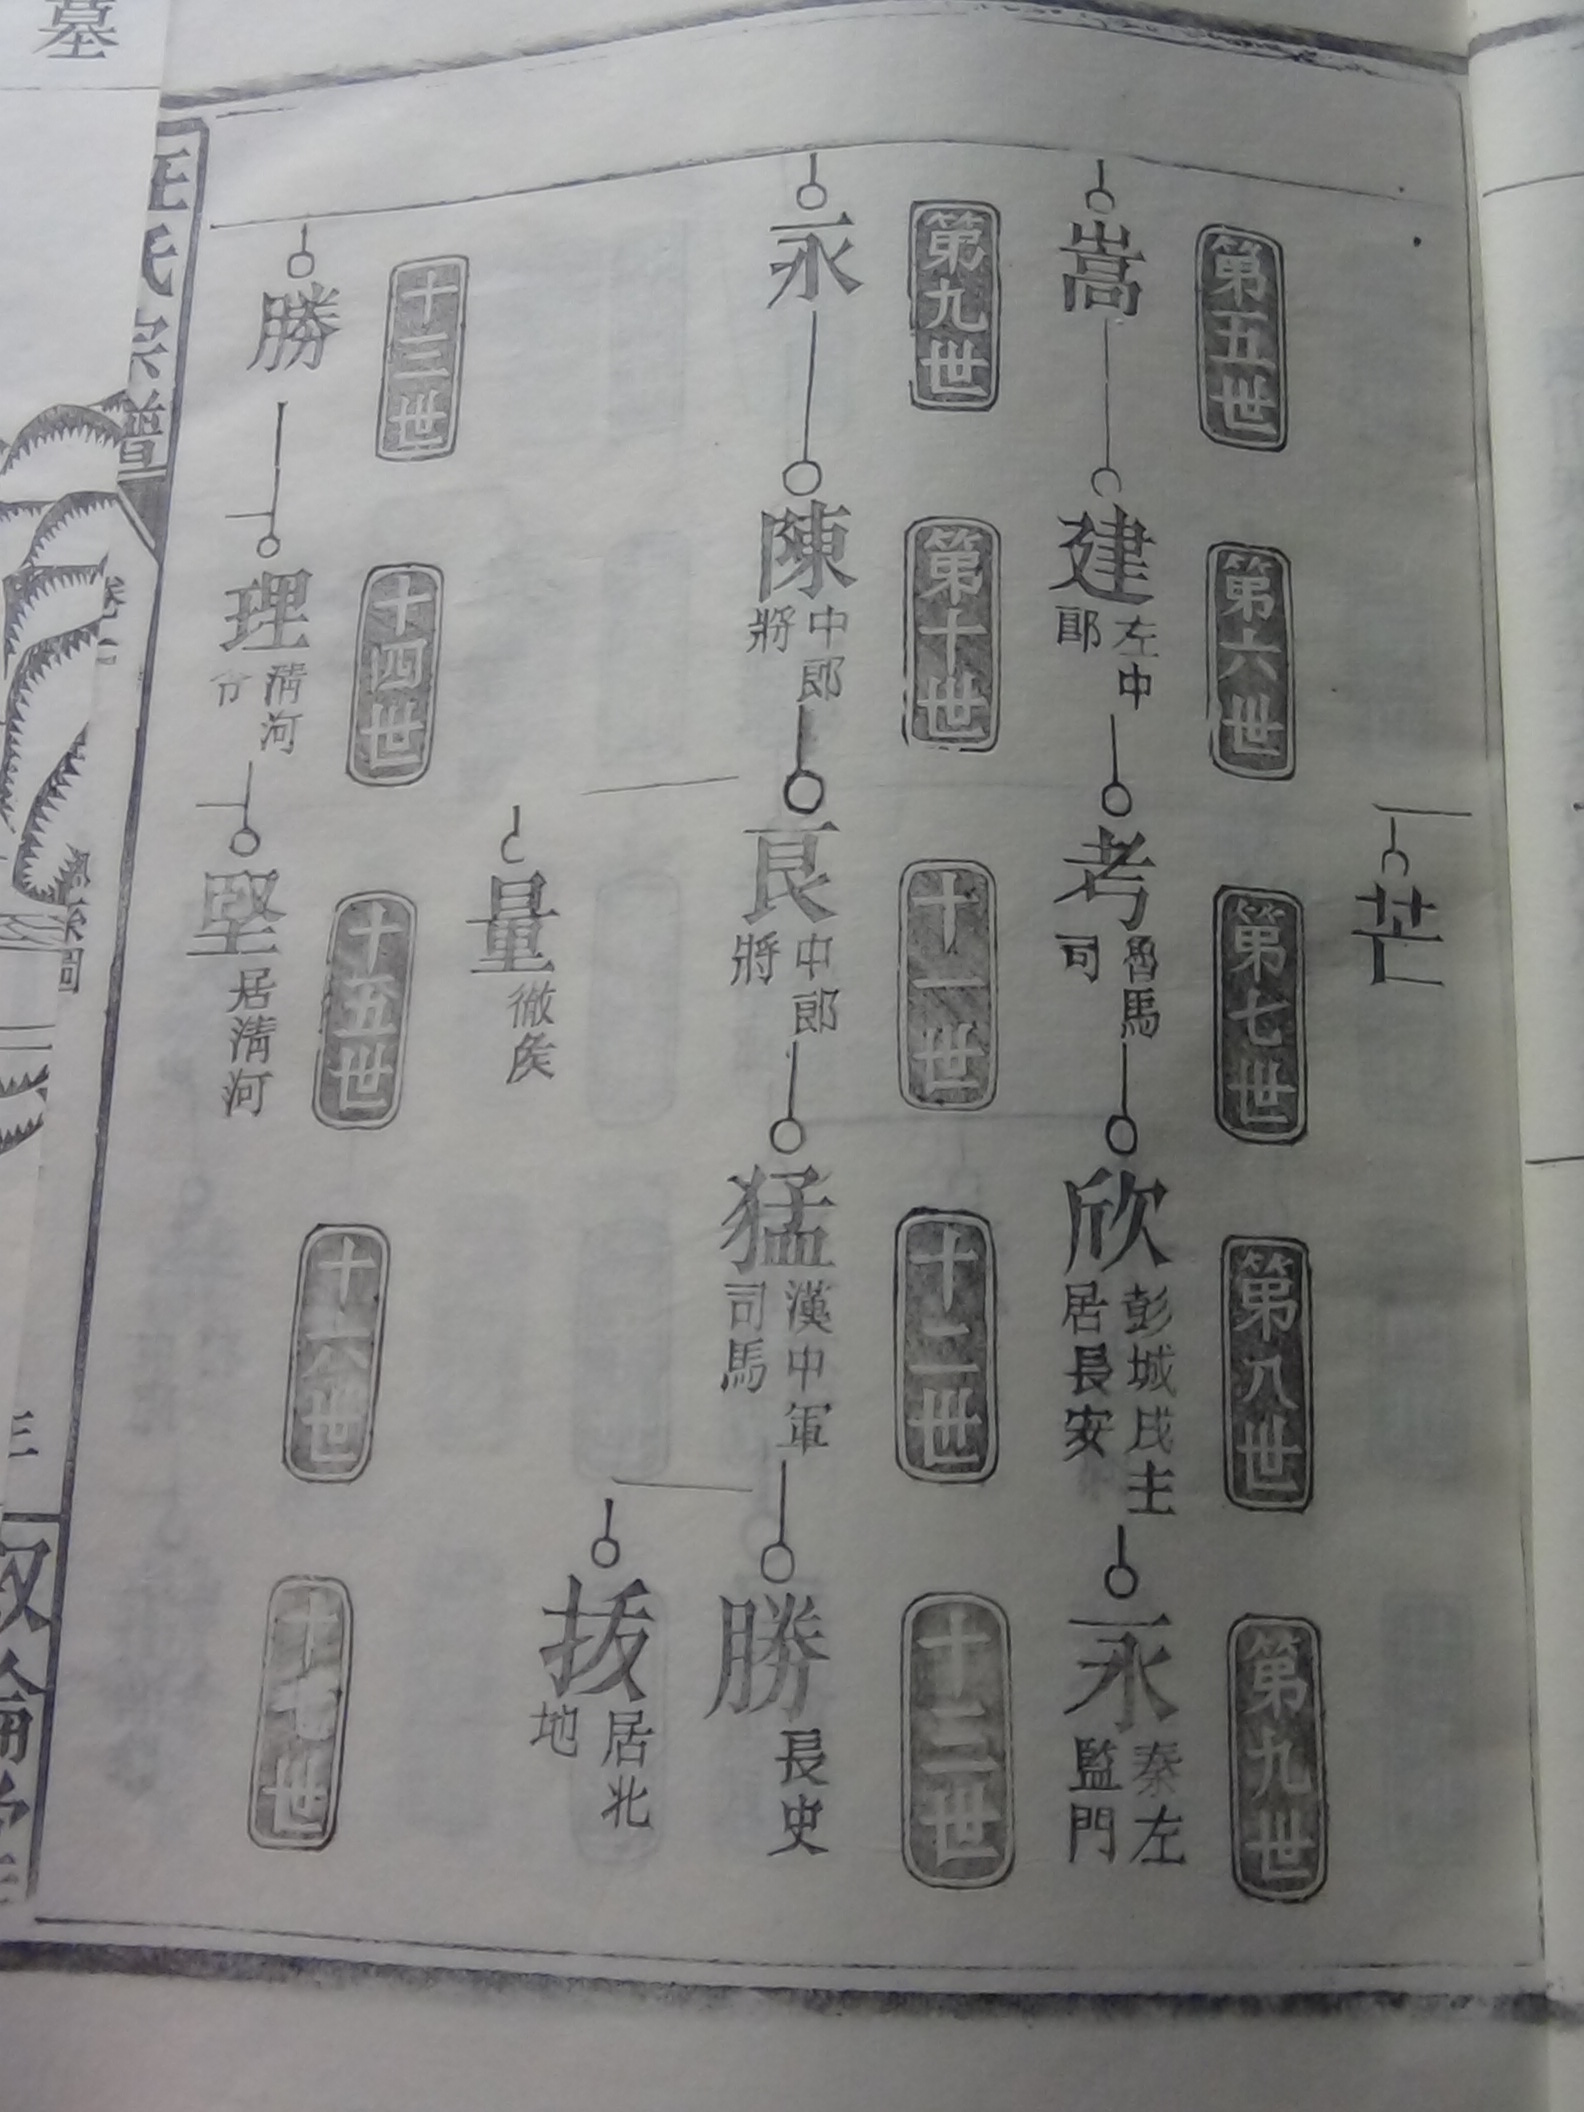 芒
第五世
第六世
第七世
第八世
第九世
嵩
建
左中
郎
考
魯馬
司
欣
彭城戍主
居長安
永
秦左
監門
第九世
第十世
十一世
十二世
十三世
永
陳
中郎
將
良
中郎
將
猛
漢中軍
司馬
勝
長史
拔
居北
地
量
徹侯
十三世
十四世
十五世
十六世
十七世
勝
理
清河
堅
居清河
汪氏宗譜
三
墓